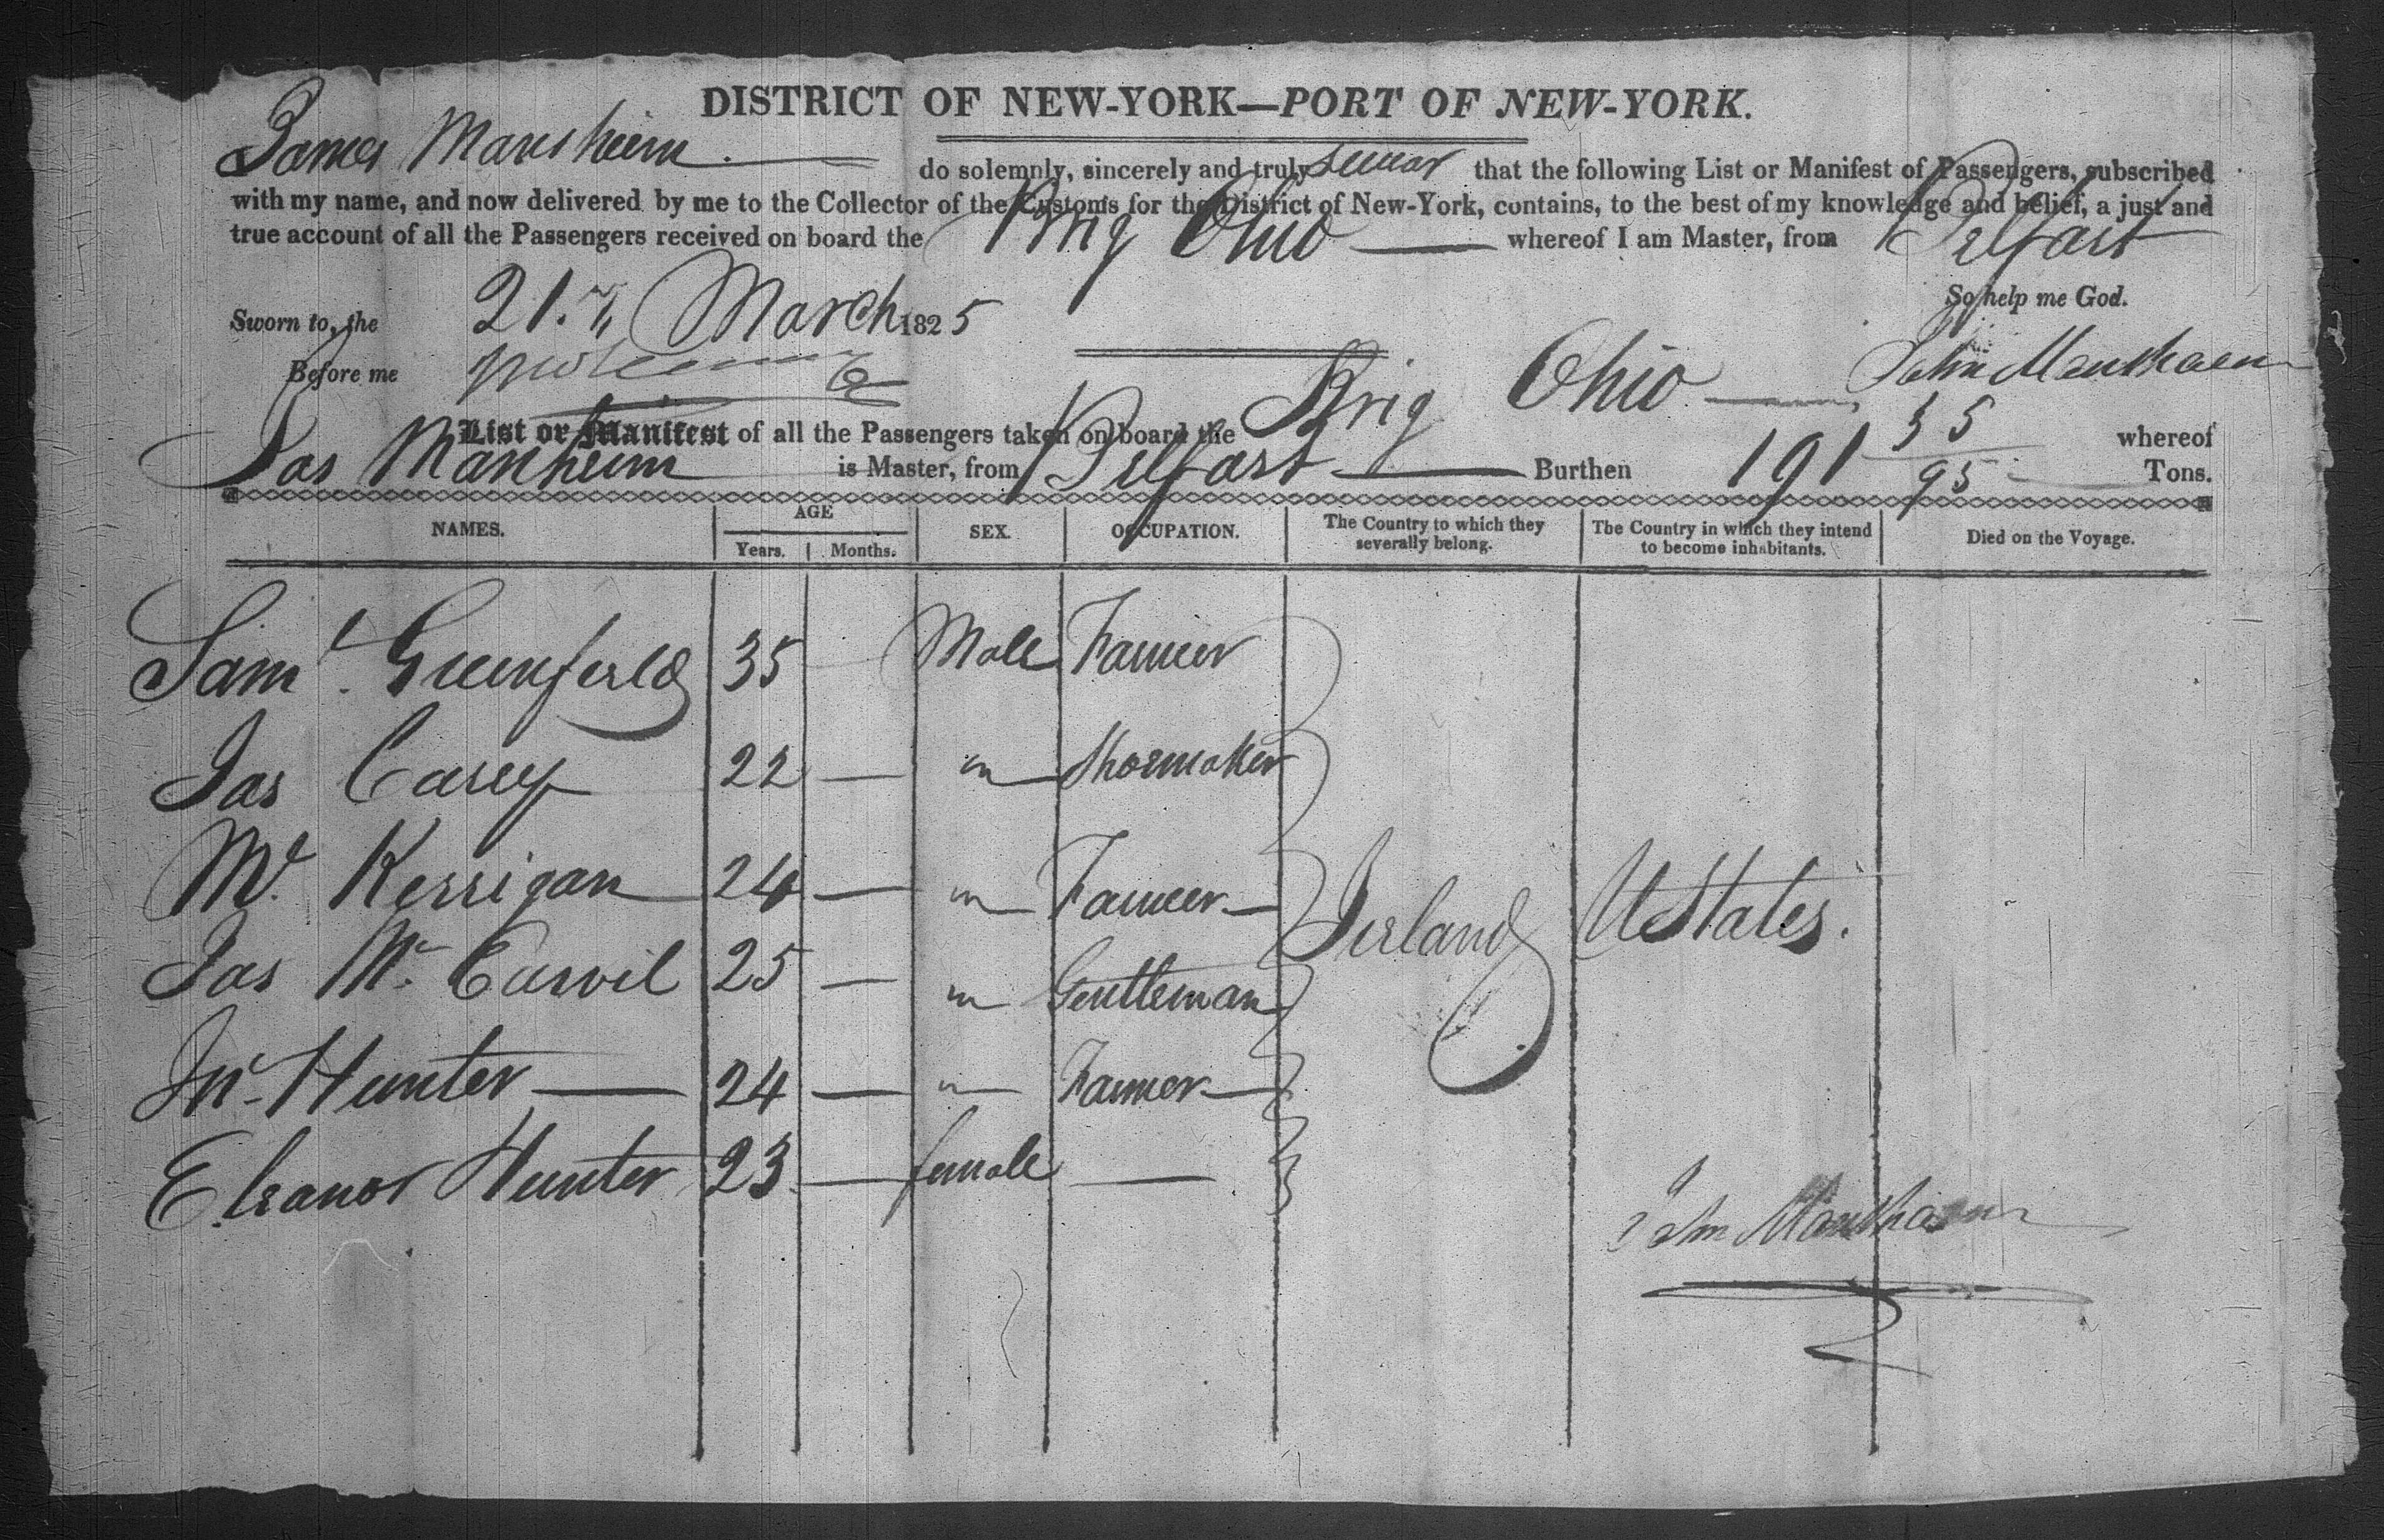 DISTRICT OF NEW-YORK—PORT OF NEW-YORK.
James Mansheim do solemnly, sincerely and truly swear that the following List or Manifest of Passengers, subscribed
with my name, and now delivered by me to the Collector of the Customs for the District of New-York, contains, to the best of my knowledge and belief, a just and
true account of all the Passengers received on board the Brig Ohio whereof I am Master, from Belfast
So help me God.
Sworn to, the 21. March 1825
Before me
John
List or Manifest of all the Passengers taken on board the Brig Ohio whereof
Jas Manheim is Master, from Belfast Burthen 191 35/95 Tons.
NAMES. AGE Years. Months. SEX. OCCUPATION. The Country to which they severally belong. The Country in which they intend to become inhabitants. Died on the Voyage.
Saml. Greenfield 35 Male Farmer
Jas Casey 22 — m Shoemaker
Kerrigan 24 — m Farmer —
Jas Mc Carvil 25 — m Gentleman
Jno Hunter — 24 — m Farmer —
Eleanor Hunter 23 — female —
Ierland UStates.
John